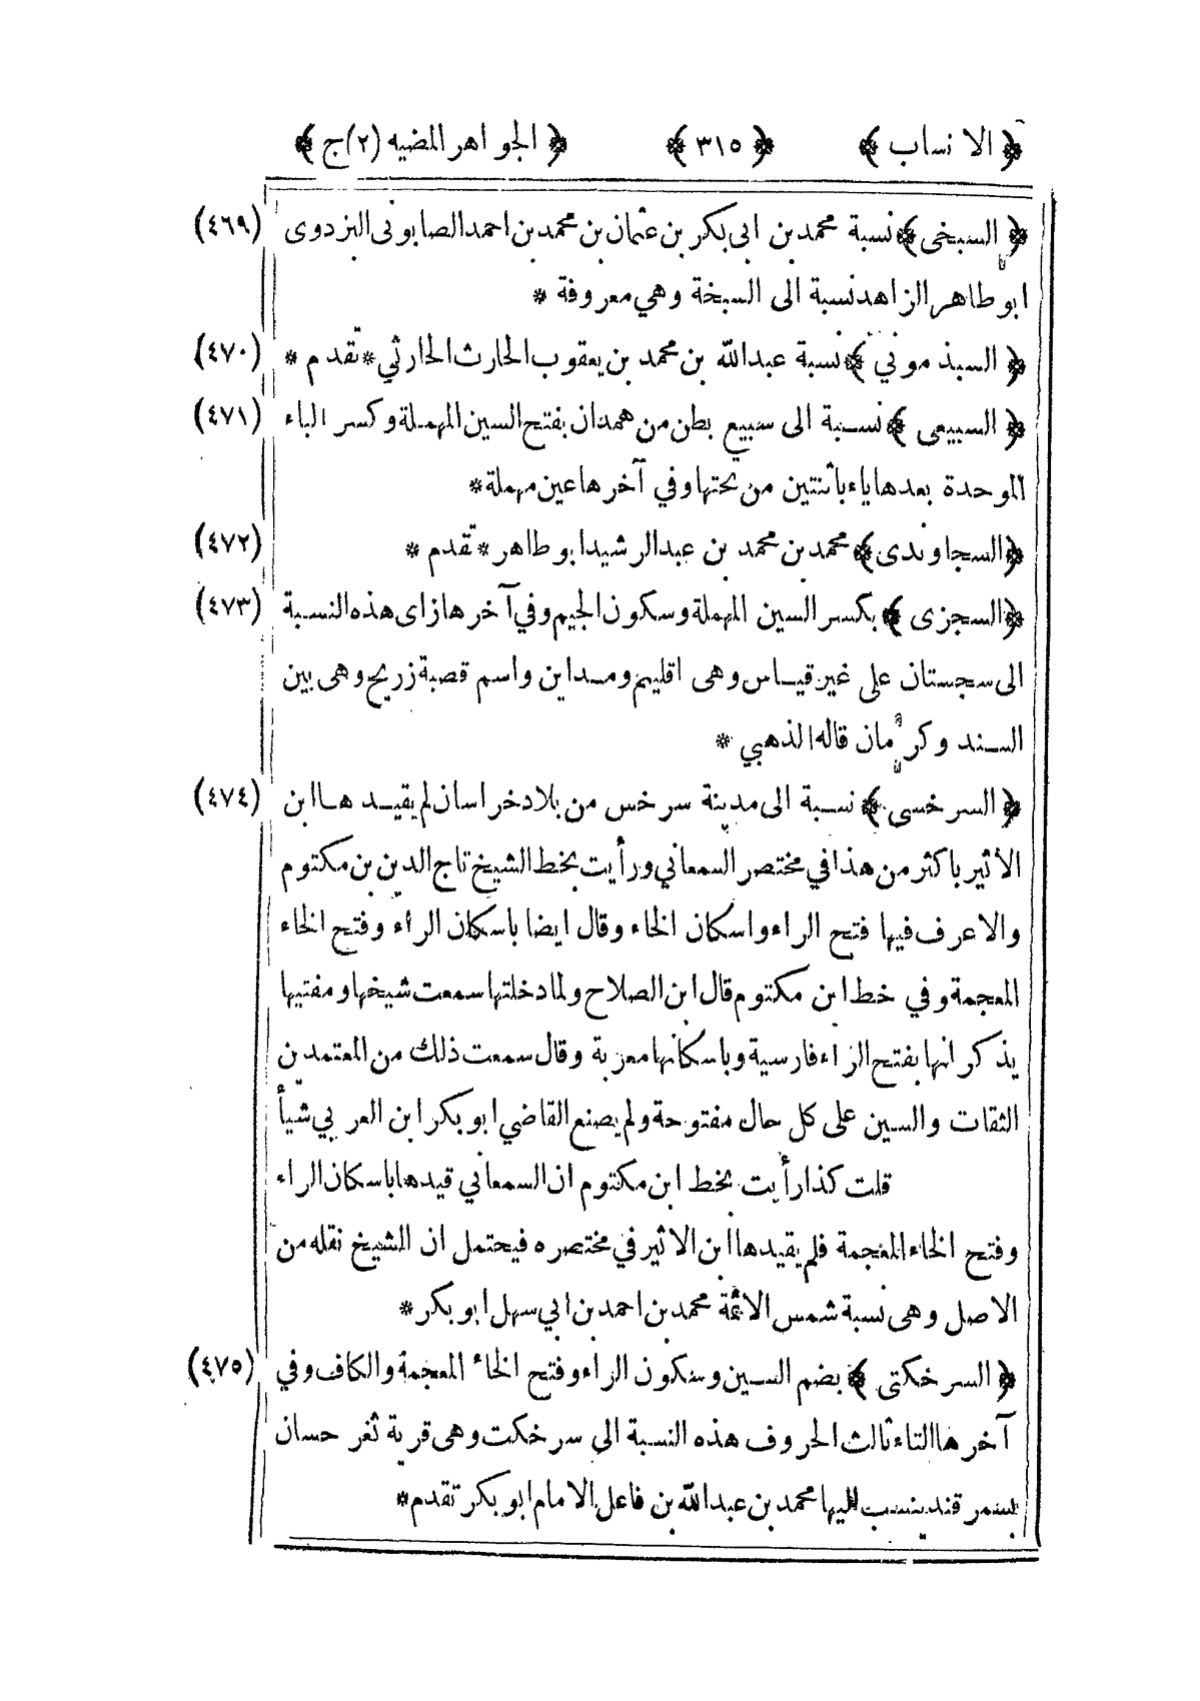 ﴿ الانساب ﴾ ﴿ ٣١٥ ﴾ ﴿ الجواهر المضيه (٢)ج ﴾
﴿ السبخى ﴾ نسبة محمد بن ابى بكر بن عثمان بن محمد بن احمد الصابونى البزدوى (٤٦٩)
ابو طاهر الزاهد نسبة الى السبخة وهي معروفة *
﴿ السبذموني ﴾ نسبة عبد الله بن محمد بن يعقوب الحارث الحارثي * تقدم * (٤٧٠)
﴿ السبيعى ﴾ نسبة الى سبيع بطن من همدان بفتح السين المهملة وكسر الباء (٤٧١)
الموحدة بعدها ياء باثنتين من تحتها وفي آخرها عين مهملة *
﴿ السجاوندى ﴾ محمد بن محمد بن عبد الرشيد ابو طاهر * تقدم * (٤٧٢)
﴿ السجزى ﴾ بكسر السين المهملة وسكون الجيم وفي آخرها زاى هذه النسبة (٤٧٣)
الى سجستان على غير قياس وهى اقليم ومداين واسم قصبة زريح وهى بين
السند وكرمان قاله الذهبي *
﴿ السرخسى ﴾ نسبة الى مدينة سرخس من بلاد خراسان لم يقيدها ابن (٤٧٤)
الأثير باكثر من هذا في مختصر السمعاني ورأيت بخط الشيخ تاج الدين بن مكتوم
والاعرف فيها فتح الراء واسكان الخاء وقال ايضا باسكان الراء وفتح الخاء
المعجمة وفي خط ابن مكتوم قال ابن الصلاح ولما دخلتها سمعت شيخها ومفتيها
يذكر انها بفتح الراء فارسية وباسكانها معربة وقال سمعت ذلك من المعتمدين
الثقات والسين على كل حال مفتوحة ولم يصنع القاضي ابو بكر ابن العربي شيأ
قلت كذا رأيت بخط ابن مكتوم ان السمعاني قيدها باسكان الراء
وفتح الخاء المعجمة فلم يقيدها ابن الاثير في مختصره فيحتمل ان الشيخ نقله من
الاصل وهى نسبة شمس الائمة محمد بن احمد بن ابي سهل ابو بكر *
﴿ السرخكتى ﴾ بضم السين وسكون الراء وفتح الخاء المعجمة والكاف وفي (٤٧٥)
آخرها التاء ثالث الحروف هذه النسبة الى سرخكت وهى قرية ثغر حسان
بسمرقند ينسب اليها محمد بن عبد الله بن فاعل الامام ابو بكر تقدم *